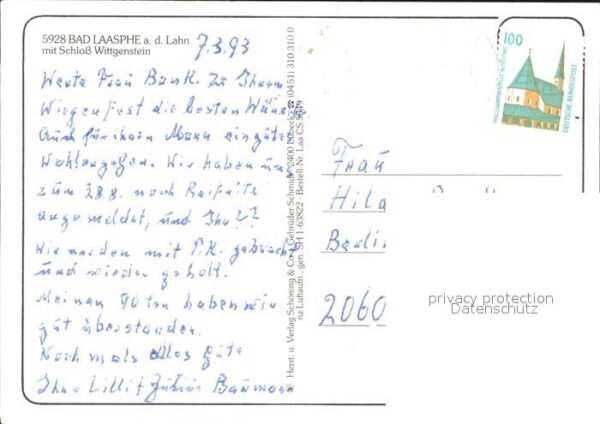 5928 BAD LAASPHE a. d. Lahn
mit Schloß Wittgenstein
7.3.93
Werte Frau Bank. Zu Ihrem
Wiegenfest die besten Wünsche
Auch für ihren Mann ein gutes
Wohlergehen. Wir haben uns
zum 28.8. nach
angemeldet, und Ihr??
Wir werden mit P.K. gebracht
und wieder geholt.
Meinen 90ten haben wir
gut überstanden.
Nochmals alles Gute
Ihre Lilli + Julius Baumann
Herst. u. Verlag Schöning & Co + Gebrüder Schmidt 2400 Lübeck (0451) 310 310 0
nz Luftaufn., gen. SH 1-63822 · Bestell-Nr. Laa CS
100
WALLFAHRTSKAPELLE ALTÖTTING
DEUTSCHE BUNDESPOST
Frau
Hila
Berli
2060
privacy protection
Datenschutz